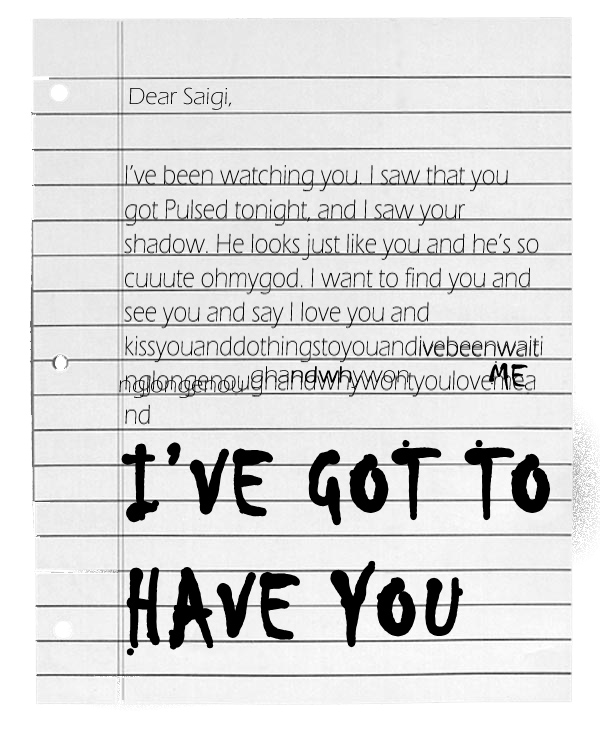 Dear Saigi,
I've been watching you. I saw that you
got Pulsed tonight, and I saw your
shadow. He looks just like you and he's so
cuuute ohmygod. I want to find you and
see you and say I love you and
kissyouanddothingstoyouandivebeenwaiti
nglongenoughandwhywontyouloveMEa
nd
I'VE GOT TO
HAVE YOU